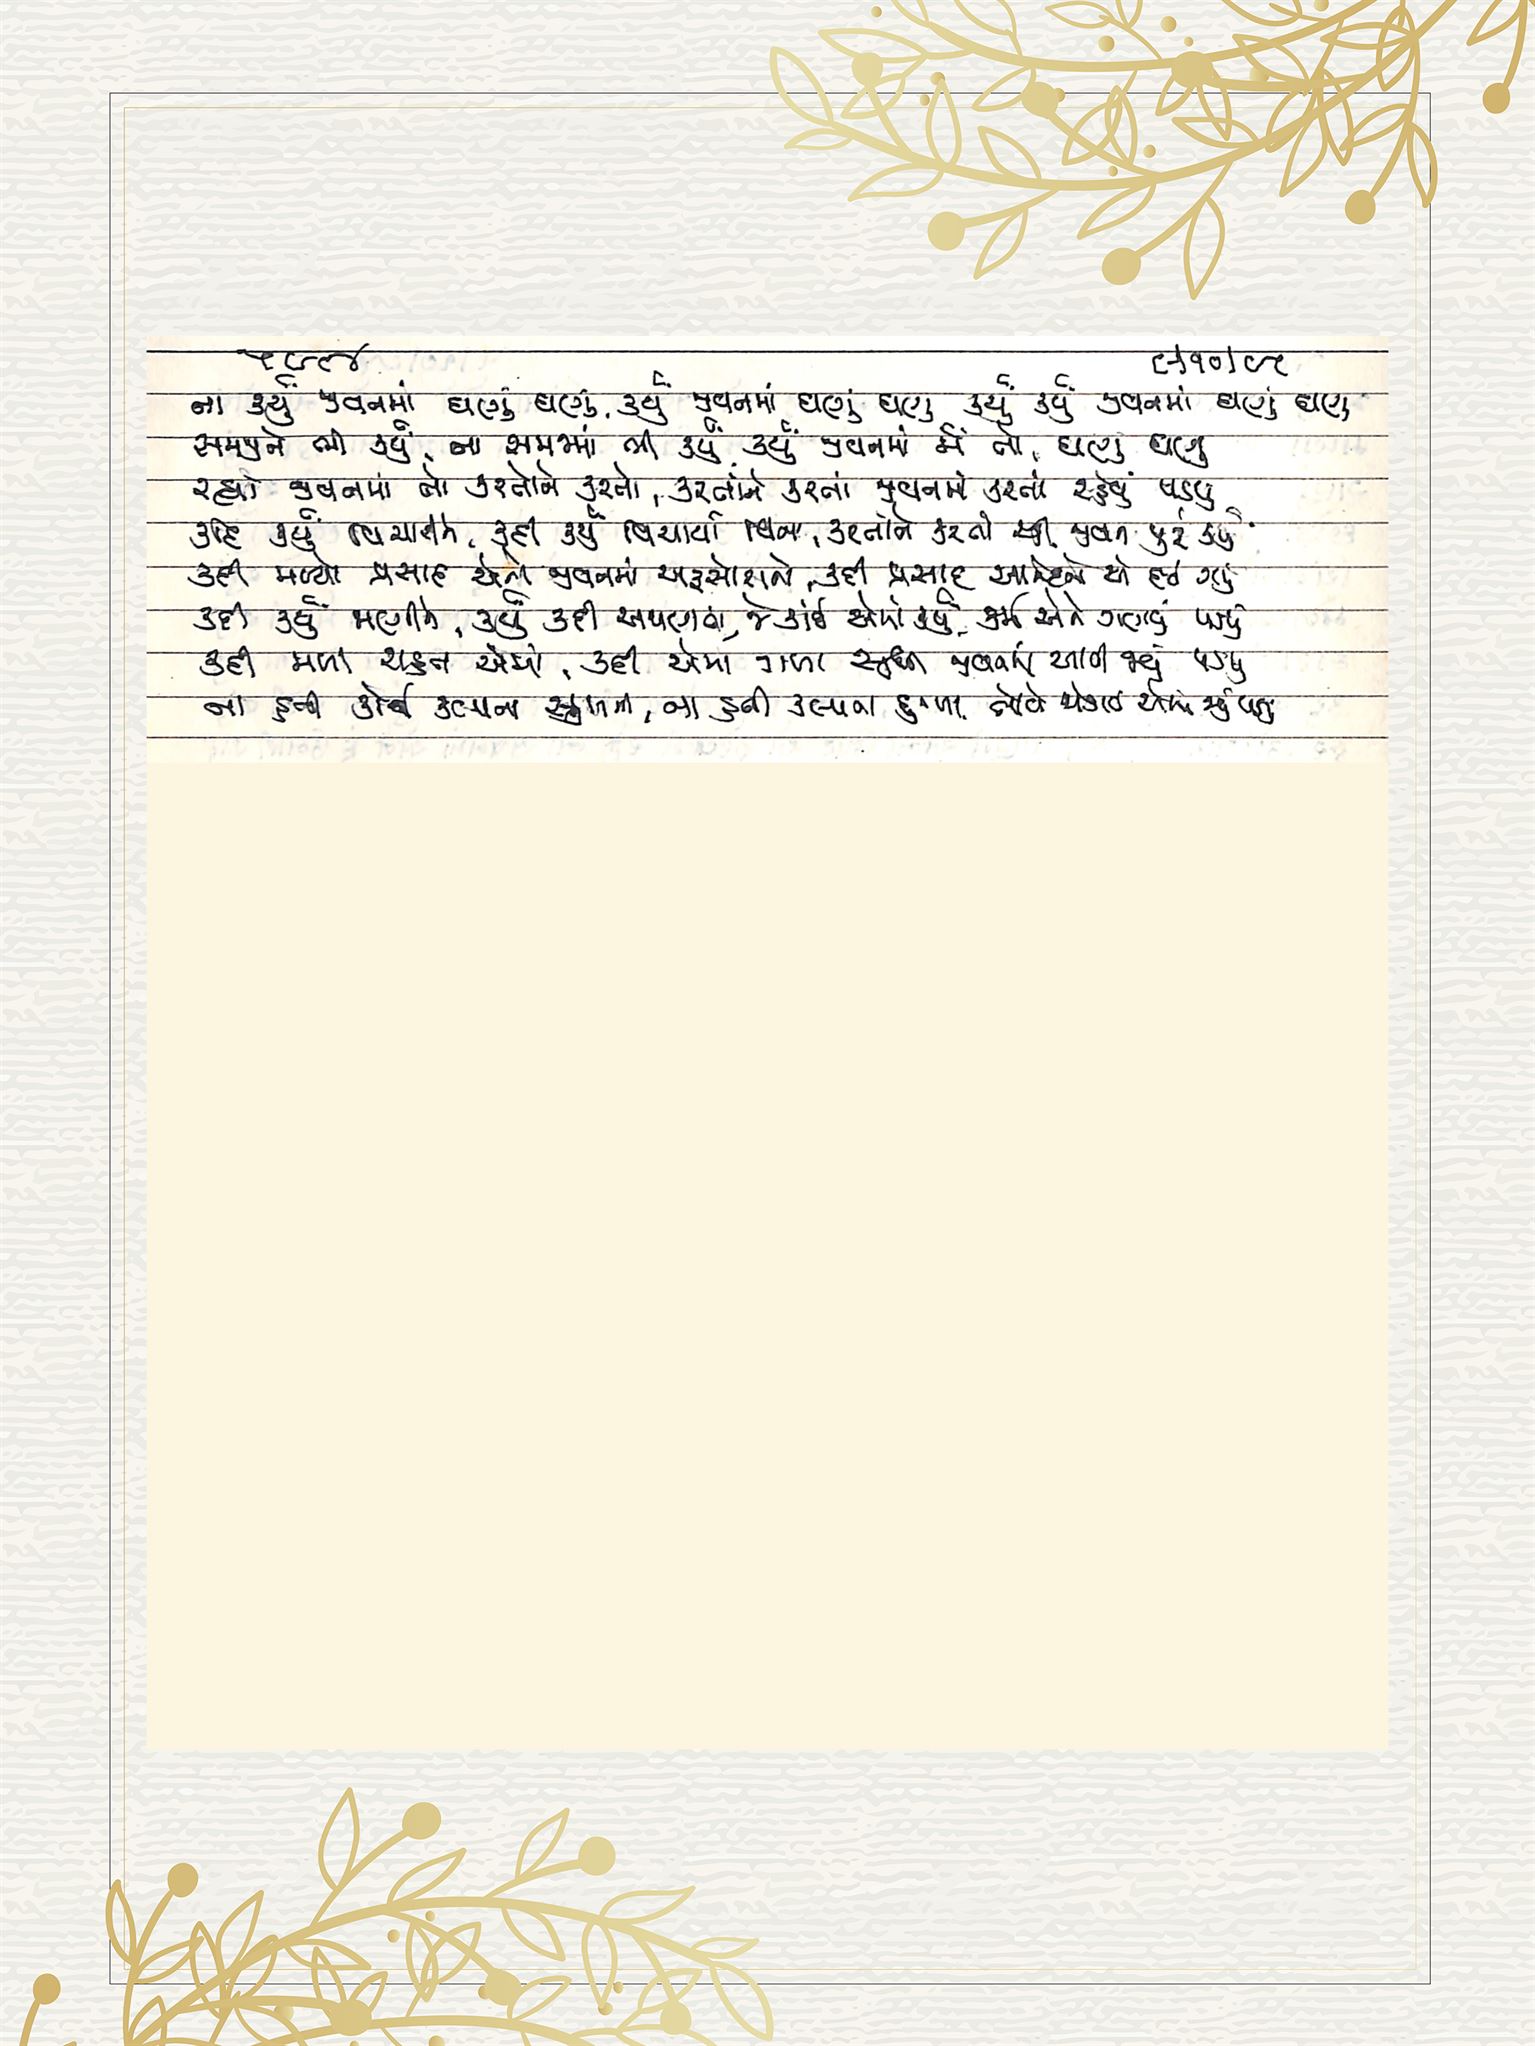 ૨૮૯૪ ૮/૧૦/૯૧
ના કર્યું જીવનમાં ઘણું ઘણું, કર્યું જીવનમાં ઘણું ઘણુ કર્યું કર્યું જીવનમાં ઘણું ઘણુ
સમજીને ભી કર્યું, ના સમજમાં ભી કર્યું કર્યું જીવનમાં મેં તો, ઘણુ ઘણુ
રહ્યો જીવનમાં તો કરતોને કરતો, કરતાંને કરતાં જીવનમાં કરતાં રહેવું પડયુ
કદિ કર્યું વિચારીને, કદી કર્યું વિચાર્યા વિના, કરતોને કરતો રહી જીવન પુરું કર્યું
કદી મળ્યો પ્રસાદ એનો જીવનમાં અફસોસનો, કદી પ્રસાદ આનંદનો એ દઈ ગયું
કદી કર્યું જાણીને, કર્યું કદી અજાણતા, જે કાંઈ એમાં કર્યું, કર્મ એને ગણવું પડયું
કદી મળી રાહત એમાં, કદી એમાં સજા જીવનમાં આવી જાવું પડયુ
ના હતી કોઈ કલ્પના સુખની, ના હતી કલ્પના દુઃખની,